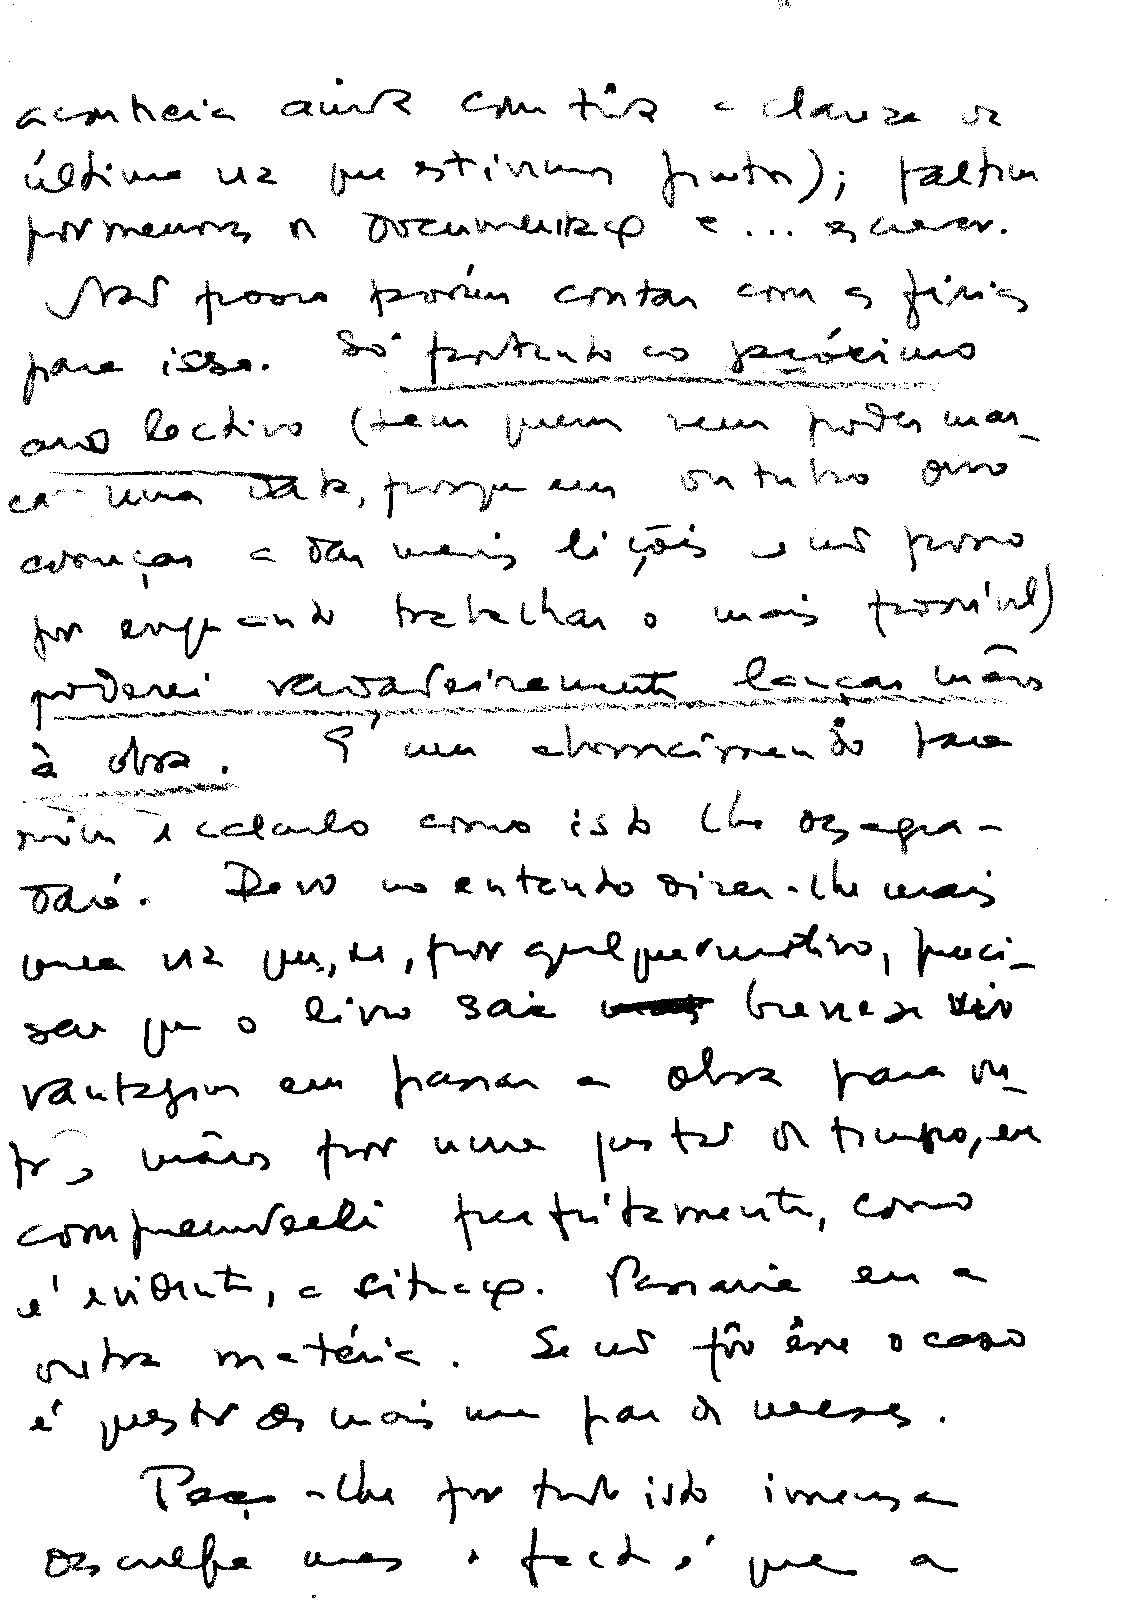 acontecia ainda com tôda a clareza da
última vez que estivemos juntos); faltam
pormenores de documentação e... escrever.
Não posso porém contar com as férias
para isso. Só portanto no próximo
ano lectivo (sem querer nem poder mar-
car uma data, porque em outubro devo
começar a dar mais lições e não posso
por enquanto trabalhar o mais possível)
poderei verdadeiramente lançar mãos
à obra. É um aborrecimento para
mim e calculo como isto lhe desagra-
dará. Devo no entanto dizer-lhe mais
uma vez que, se, por qualquer motivo, preci-
sar que o livro saia breve e vir
vantagem em passar a obra para ou-
tras mãos por uma questão de tempo, eu
compreenderei perfeitamente, como
é evidente, a situação. Passaria eu a
outra matéria. Se não fôr êsse o caso
é questão de mais um par de meses.
Peço-lhe por tudo isto imensa
desculpa mas o facto é que a